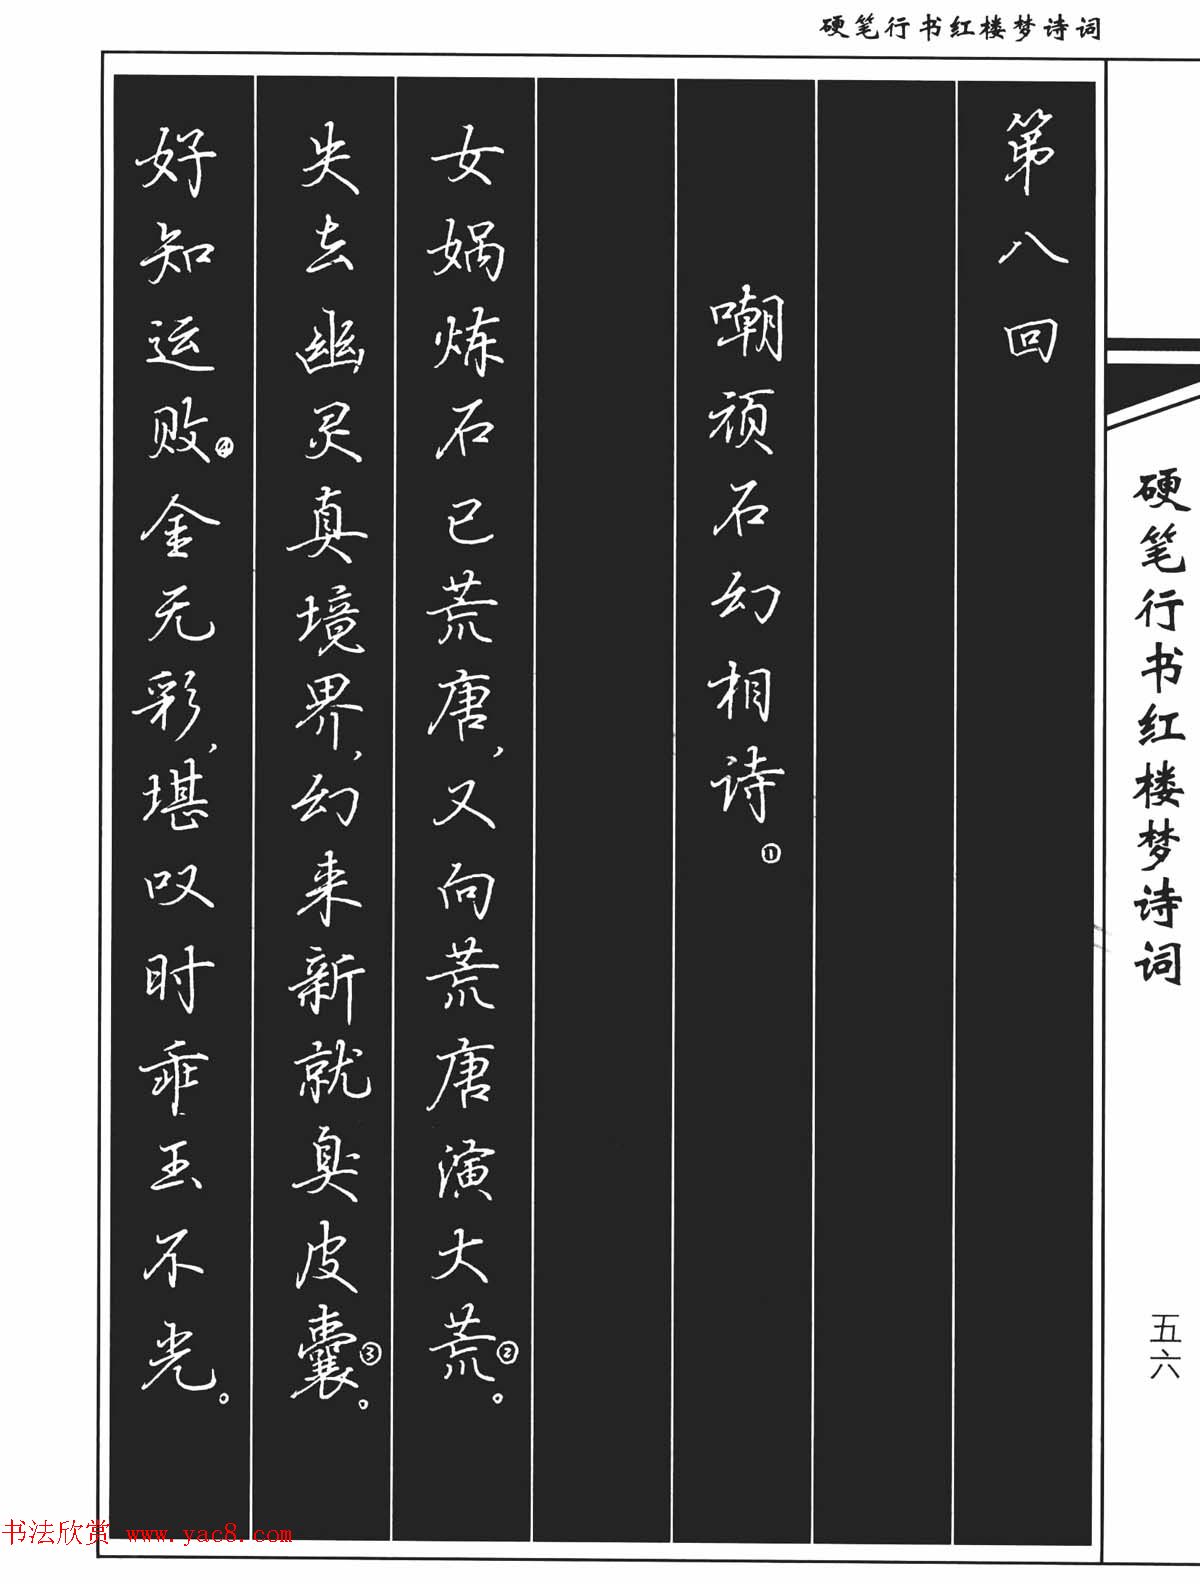 硬笔行书红楼梦诗词
第八回
嘲顽石幻相诗①
女娲炼石已荒唐，又向荒唐演大荒②。
失去幽灵真境界，幻来新就臭皮囊③。
好知运败④金无彩，堪叹时乖玉不光。
硬笔行书红楼梦诗词
五六
书法欣赏 www.yac8.com